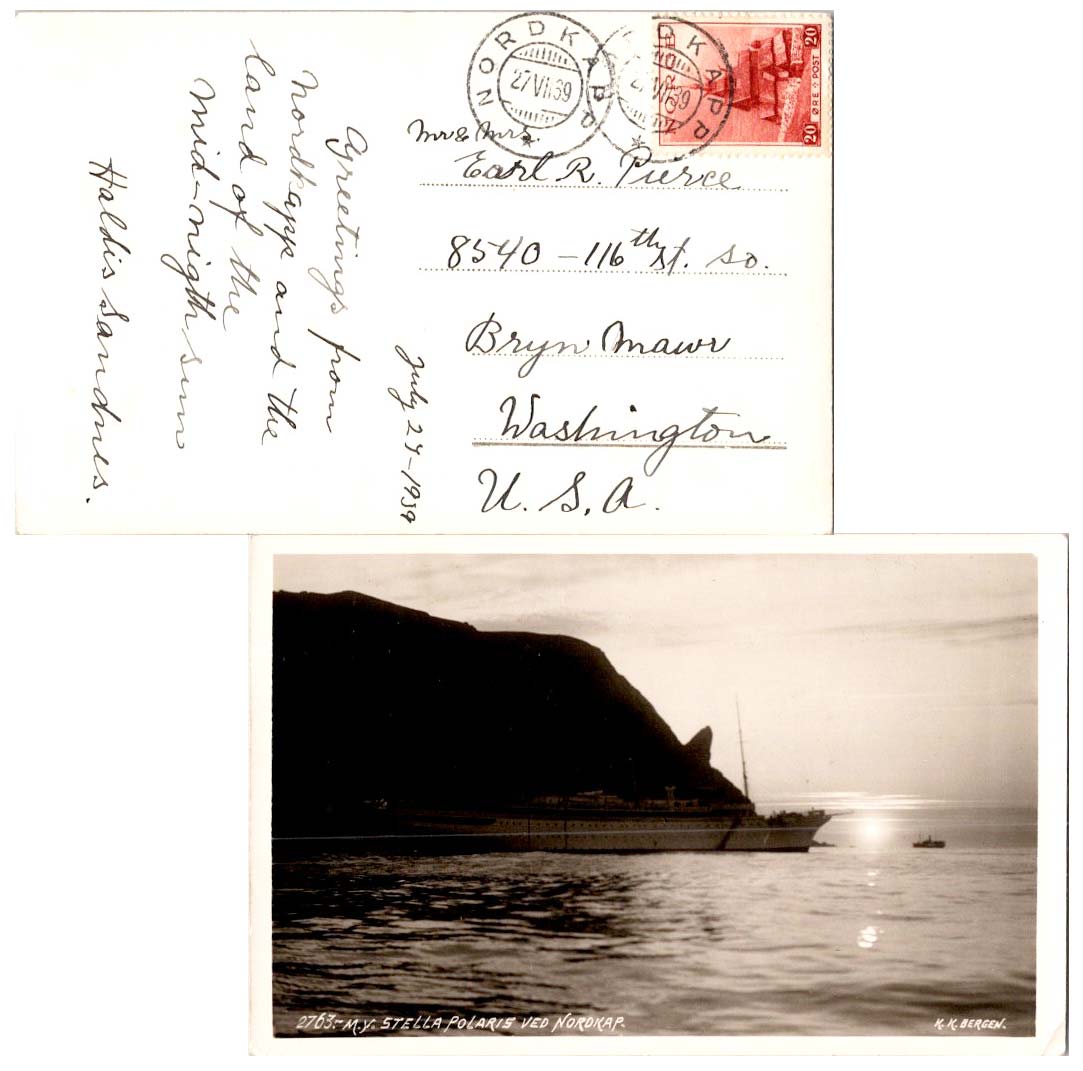 NORDKAPP
27 VII 39
NORDKAPP
27 VII 39
20
ØRE + POST
20
Mr & Mrs.
Earl R. Pierce
8540 - 116th St. So.
Bryn Mawr
Washington
U. S. A.
July 27 - 1939
Greetings from
Nordkapp and the
land of the
mid-nigth sun
Haldis Sandnes.
2763.- M.Y. STELLA POLARIS VED NORDKAP.
K. K. BERGEN.